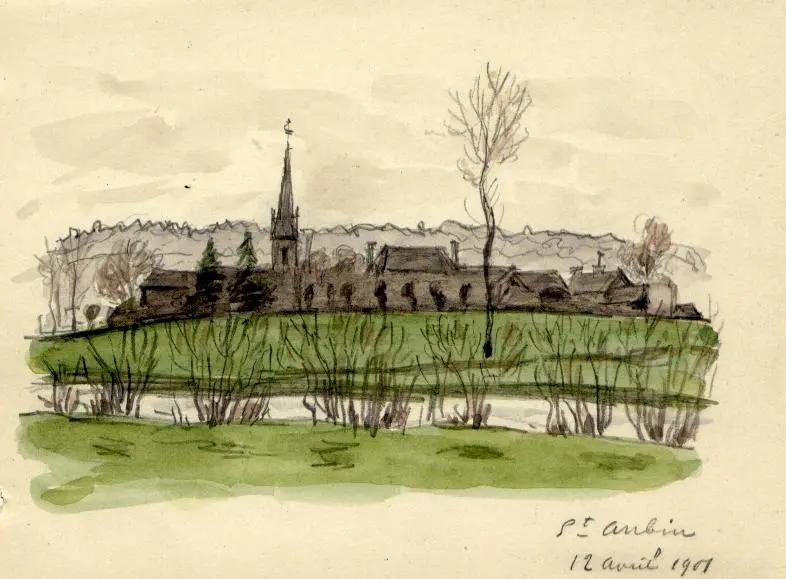 St Aubin
12 avril 1901